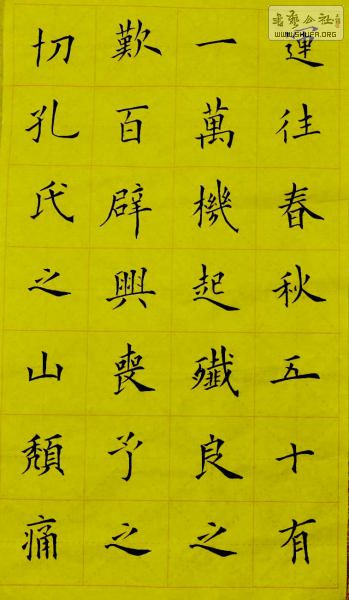 運往春秋五十有
一萬機起殲良之
歎百辟興喪予之
切孔氏之山頹痛
書藝公社
WWW.SHUFA.ORG